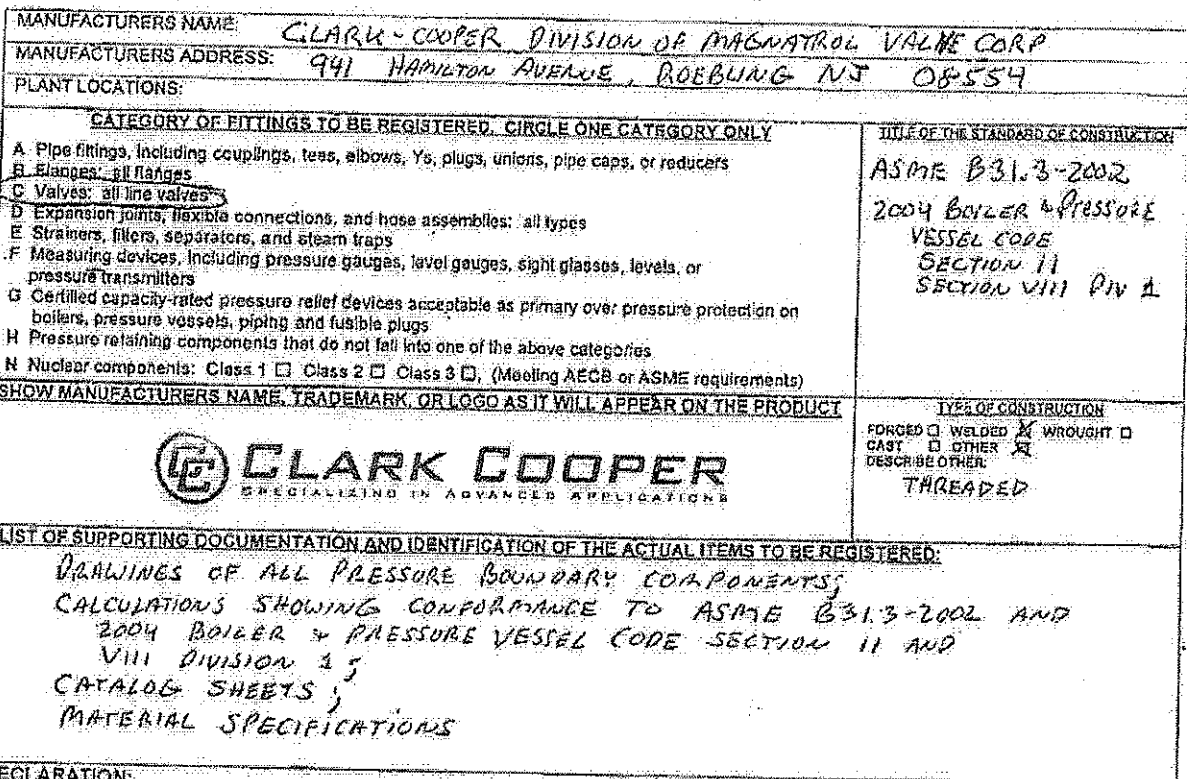 MANUFACTURERS NAME: CLARK-COOPER DIVISION OF MAGNATROL VALVE CORP
MANUFACTURERS ADDRESS: 941 HAMILTON AVENUE, ROEBLING NJ 08554
PLANT LOCATIONS:
CATEGORY OF FITTINGS TO BE REGISTERED, CIRCLE ONE CATEGORY ONLY
A Pipe fittings, including couplings, tees, elbows, Ys, plugs, unions, pipe caps, or reducers
B Flanges: all flanges
C Valves: all line valves
D Expansion joints, flexible connections, and hose assemblies: all types
E Strainers, filters, separators, and steam traps
F Measuring devices, including pressure gauges, level gauges, sight glasses, levels, or
pressure transmitters
G Certified capacity-rated pressure relief devices acceptable as primary over pressure protection on
boilers, pressure vessels, piping and fusible plugs
H Pressure retaining components that do not fall into one of the above categories
N Nuclear components: Class 1 ☐ Class 2 ☐ Class 3 ☐, (Meeting AECB or ASME requirements)
TITLE OF THE STANDARD OF CONSTRUCTION
ASME B31.3-2002
2004 BOILER & PRESSURE
VESSEL CODE
SECTION II
SECTION VIII DIV 1
SHOW MANUFACTURERS NAME, TRADEMARK, OR LOGO AS IT WILL APPEAR ON THE PRODUCT
CC CLARK COOPER
SPECIALIZING IN ADVANCED APPLICATIONS
TYPE OF CONSTRUCTION
FORGED ☐ WELDED ☒ WROUGHT ☐
CAST ☐ OTHER ☒
DESCRIBE OTHER:
THREADED
LIST OF SUPPORTING DOCUMENTATION AND IDENTIFICATION OF THE ACTUAL ITEMS TO BE REGISTERED:
DRAWINGS OF ALL PRESSURE BOUNDARY COMPONENTS;
CALCULATIONS SHOWING CONFORMANCE TO ASME B31.3-2002 AND
2004 BOILER & PRESSURE VESSEL CODE SECTION II AND
VIII DIVISION 1;
CATALOG SHEETS;
MATERIAL SPECIFICATIONS
ECLARATION: